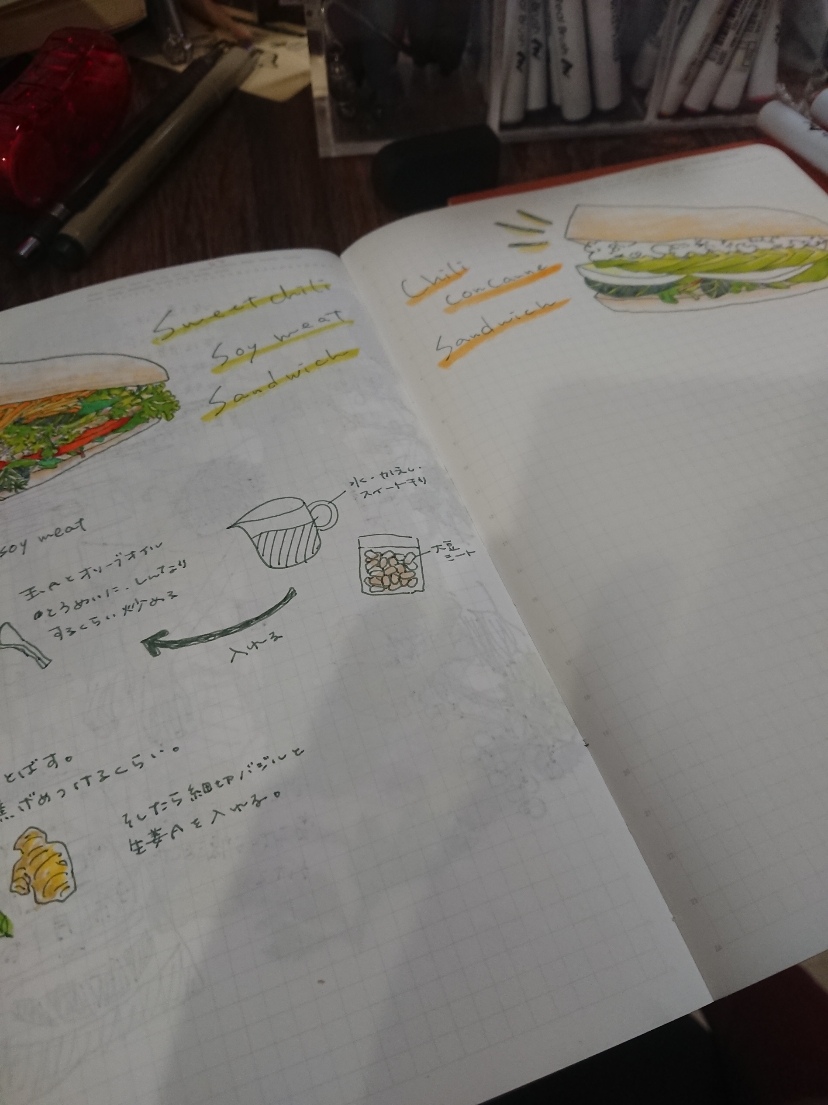 Sweet chili
Soy meat
Sandwich
soy meat
玉Aとオリーブオイル
しんなり
するくらい炒める
水・かえし・
スイートチリ
大豆
ミート
入れる
とばす。
焦げめつけるくらい。
そしたら細切バジルと
生姜Aを入れる。
Chili
concarne
Sandwich